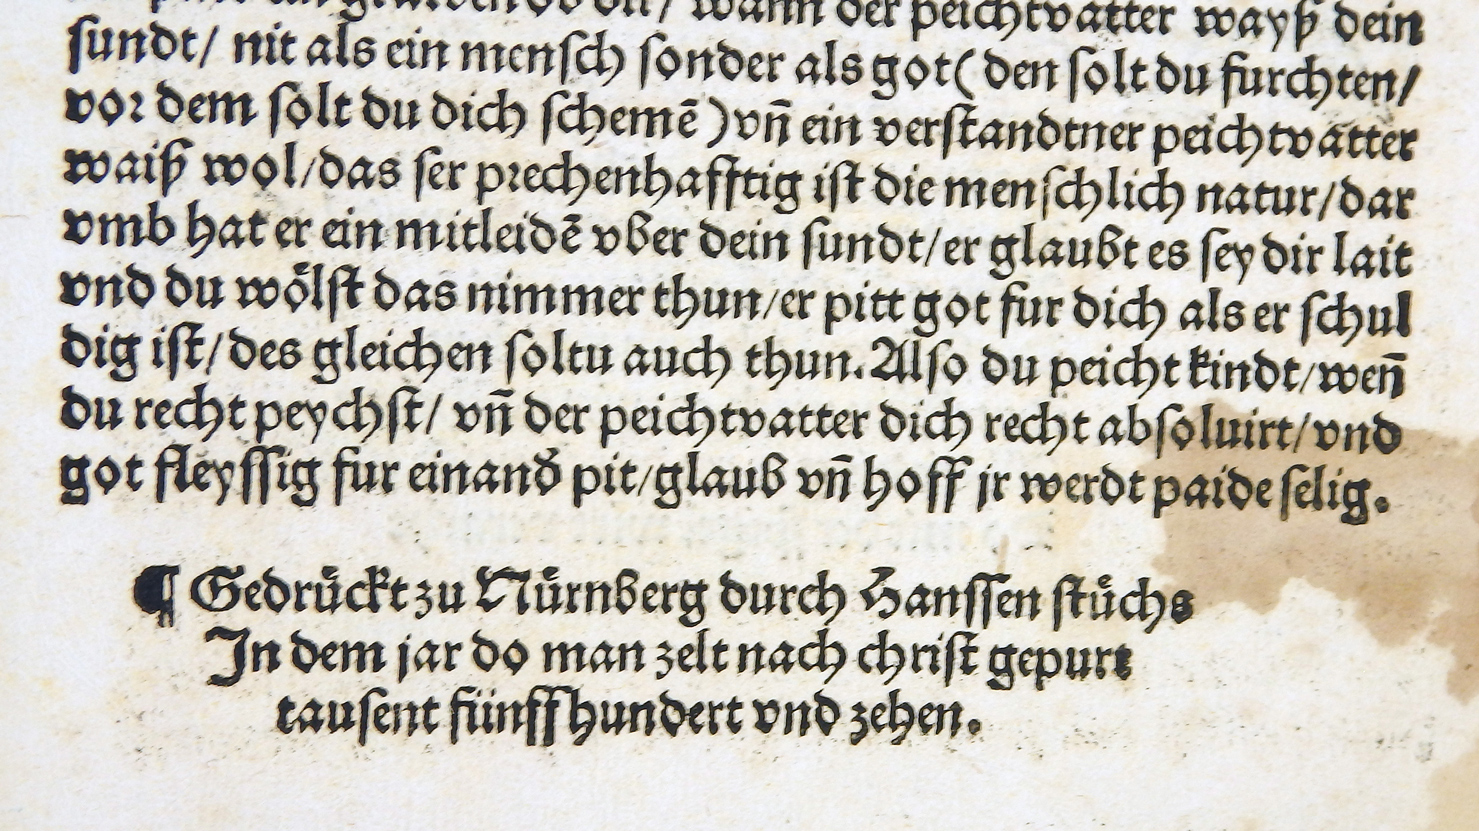 wann der peichtvatter wayß dein
sundt/ nit als ein mensch sonder als got( den solt du furchten/
vor dem solt du dich schemē )vn̄ ein verstandtner peichtvatter
waiß wol/das ser prechenhafftig ist die menschlich natur/dar
vmb hat er ein mitleidē vber dein sundt/er glaubt es sey dir lait
vnd du woͤlst das nimmer thun/er pitt got fur dich als er schul
dig ist/des gleichen soltu auch thun. Also du peicht kindt/wen̄
du recht peychst/ vn̄ der peichtvatter dich recht absoluirt/vnd
got fleyssig fur einand̄ pit/glaub vn̄ hoff jr werdt paide selig.
¶ Gedruͤckt zu Nuͤrnberg durch Hanssen stuͤchs
In dem jar do man zelt nach christ gepurt
tausent fünffhundert vnd zehen.